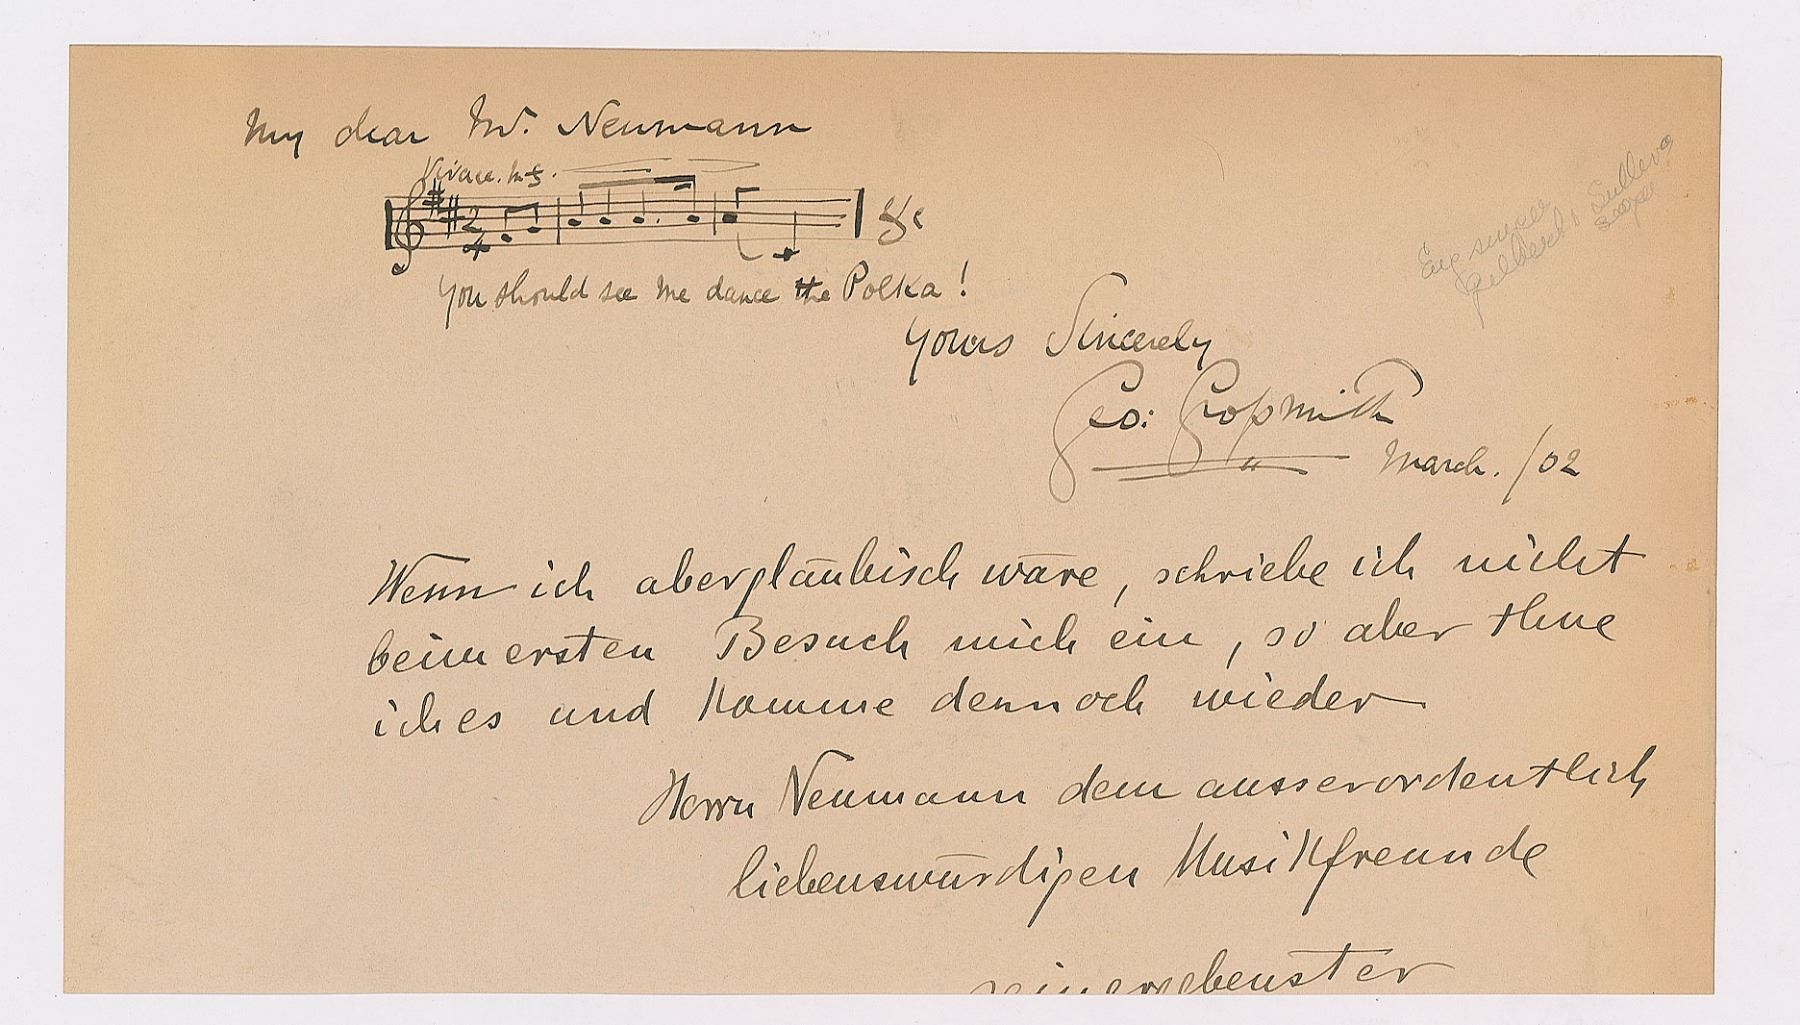 My dear Mr. Neumann
Vivace. mf.
2
4
&c
You should see me dance the Polka!
Yours Sincerely
Geo: Grossmith
March. /02
Eng singer
Gilbert & Sullivan
Wenn ich abergläubisch wäre, schriebe ich nicht
beim ersten Besuch mich ein, so aber thue
ich es und komme dennoch wieder
Herrn Neumann dem ausserordentlich
liebenswürdigen Musikfreunde
sein ergebenster